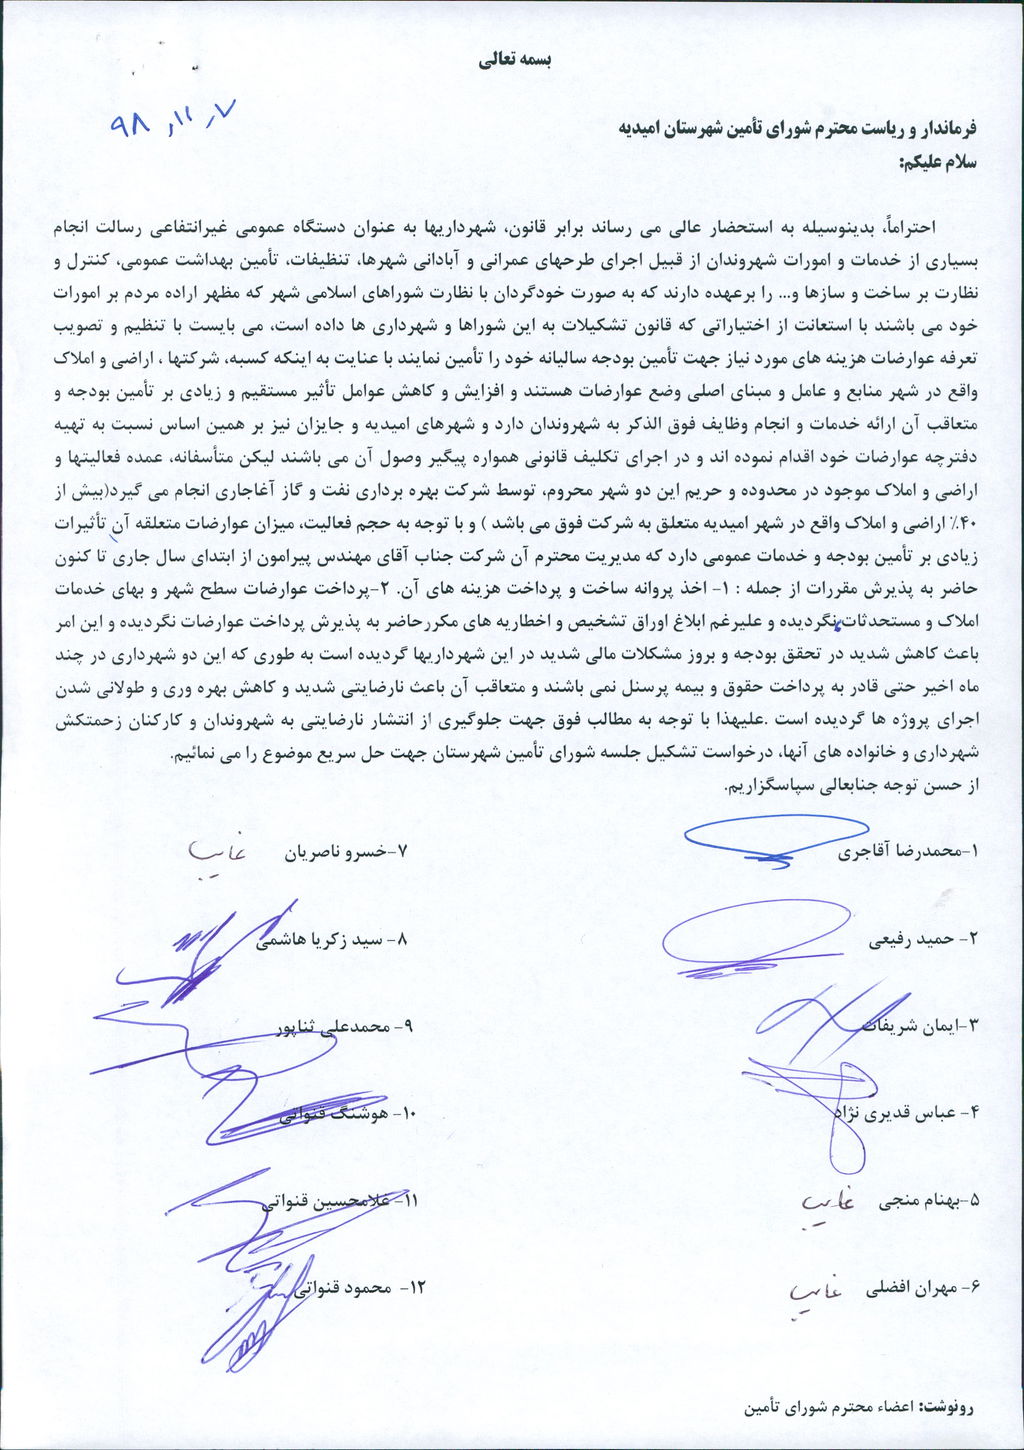 بسمه تعالی
۹۸٫۱۱٫۷
فرماندار و ریاست محترم شورای تأمین شهرستان امیدیه
سلام علیکم:
احتراماً، بدینوسیله به استحضار عالی می رساند برابر قانون، شهرداریها به عنوان دستگاه عمومی غیرانتفاعی رسالت انجام
بسیاری از خدمات و امورات شهروندان از قبیل اجرای طرحهای عمرانی و آبادانی شهرها، تنظیفات، تأمین بهداشت عمومی، کنترل و
نظارت بر ساخت و سازها و... را برعهده دارند که به صورت خودگردان با نظارت شوراهای اسلامی شهر که مظهر اراده مردم بر امورات
خود می باشند با استعانت از اختیاراتی که قانون تشکیلات به این شوراها و شهرداری ها داده است، می بایست با تنظیم و تصویب
تعرفه عوارضات هزینه های مورد نیاز جهت تأمین بودجه سالیانه خود را تأمین نمایند با عنایت به اینکه کسبه، شرکتها ، اراضی و املاک
واقع در شهر منابع و عامل و مبنای اصلی وضع عوارضات هستند و افزایش و کاهش عوامل تأثیر مستقیم و زیادی بر تأمین بودجه و
متعاقب آن ارائه خدمات و انجام وظایف فوق الذکر به شهروندان دارد و شهرهای امیدیه و جایزان نیز بر همین اساس نسبت به تهیه
دفترچه عوارضات خود اقدام نموده اند و در اجرای تکلیف قانونی همواره پیگیر وصول آن می باشند لیکن متأسفانه، عمده فعالیتها و
اراضی و املاک موجود در محدوده و حریم این دو شهر محروم، توسط شرکت بهره برداری نفت و گاز آغاجاری انجام می گیرد(بیش از
۴۰٪ اراضی و املاک واقع در شهر امیدیه متعلق به شرکت فوق می باشد ) و با توجه به حجم فعالیت، میزان عوارضات متعلقه آن تأثیرات
زیادی بر تأمین بودجه و خدمات عمومی دارد که مدیریت محترم آن شرکت جناب آقای مهندس پیرامون از ابتدای سال جاری تا کنون
حاضر به پذیرش مقررات از جمله : ۱- اخذ پروانه ساخت و پرداخت هزینه های آن. ۲-پرداخت عوارضات سطح شهر و بهای خدمات
املاک و مستحدثات نگردیده و علیرغم ابلاغ اوراق تشخیص و اخطاریه های مکررحاضر به پذیرش پرداخت عوارضات نگردیده و این امر
باعث کاهش شدید در تحقق بودجه و بروز مشکلات مالی شدید در این شهرداریها گردیده است به طوری که این دو شهرداری در چند
ماه اخیر حتی قادر به پرداخت حقوق و بیمه پرسنل نمی باشند و متعاقب آن باعث نارضایتی شدید و کاهش بهره وری و طولانی شدن
اجرای پروژه ها گردیده است .علیهذا با توجه به مطالب فوق جهت جلوگیری از انتشار نارضایتی به شهروندان و کارکنان زحمتکش
شهرداری و خانواده های آنها، درخواست تشکیل جلسه شورای تأمین شهرستان جهت حل سریع موضوع را می نمائیم.
از حسن توجه جنابعالی سپاسگزاریم.
۱-محمدرضا آقاجری
۲- حمید رفیعی
۳-ایمان شریفات
۴- عباس قدیری نژاد
۵-بهنام منجی غایب
۶- مهران افضلی غایب
۷-خسرو ناصریان غایب
۸- سید زکریا هاشمی
۹- محمدعلی ثناپور
۱۰- هوشنگ قنواتی
۱۱- غلامحسین قنواتی
۱۲- محمود قنواتی
رونوشت: اعضاء محترم شورای تأمین